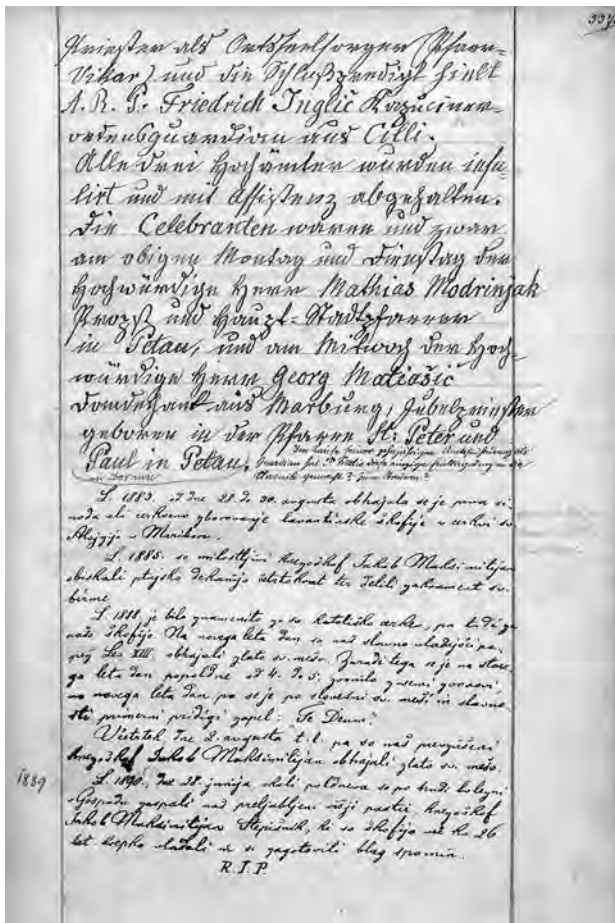 Priester als Ortsseelsorger (Pfarr-
Vikar) und die Schlußpredigt hielt
A. R. P. Friedrich Inglič Kapuciner-
ordensguardian aus Cilli.
Alle drei Hochämter wurden infu-
lirt und mit Assistenz abgehalten.
Die Celebranten waren und zwar
am obigen Montag und Dienstag der
Hochwürdige Herr Mathias Modrinjak
Propst und Haupt-Stadtpfarrer
in Petau, und am Mitwoch der Hoch-
würdige Herr Georg Matiašič
Domdechant aus Marburg, Jubelpriester
geboren in der Pfarre St: Peter und
Paul in Petau.
L. 1883. od dne 28. do 30. avgusta obhajala se je prva si-
noda ali cerkveno zborovanje lavantinske škofije v cerkvi sv.
Alojzija v Mariboru.
L. 1885. so milostljivi knezoškof Jakob Maksimilijan
obiskali ptujsko dekanijo četrtokrat ter delili zakrament sv.
birme.
L. 1888. je bilo znamenito za sv. katoliško cerkev, pa tudi za
našo škofijo. Na novega leta dan so naš slavno vladajoči pa-
pež Leo XIII. obhajali zlato sv. mešo. Zaradi tega se je na stare-
ga leta dan popoldne od 4. do 5. zvonilo z vsemi zvonovi,
na novega leta dan pa se je po slovesni sv. meši in slavno-
sti primerni pridigi zapel: "Te Deum."
Včetrtek dne 2. avgusta t. l. pa so naš prevzvišeni
knezoškof Jakob Maksimilijan obhajali zlato sv. mešo.
1889
L. 1890. dne 28. junija okoli poldneva so po hudi bolezni
v Gospodu zaspali naš preljubljeni višji pastir knezoškof
Jakob Maksimilijan Stepišnik, ki so škofijo več ko 26
let krepko vladali in si zagotovili blag spomin.
R. I. P.